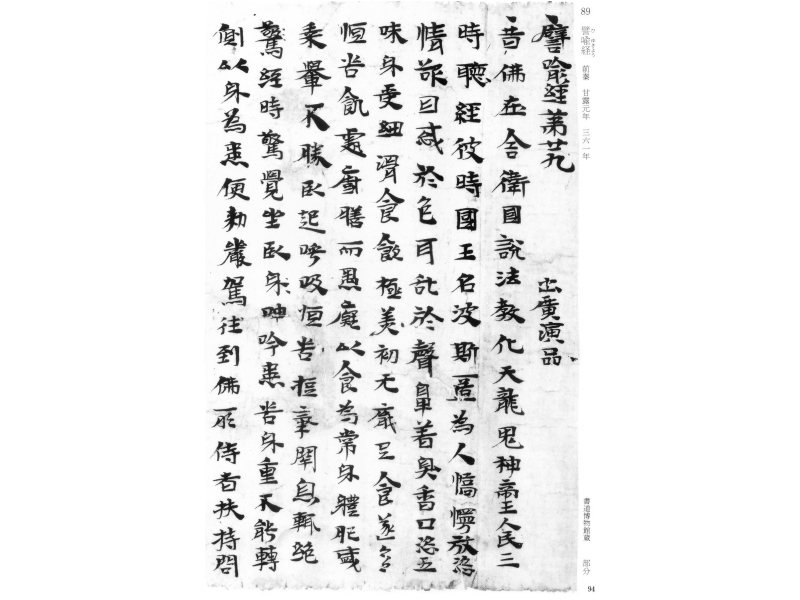 89 譬喩経 前秦 甘露元年 三六一年
譬喻經第廿九 出廣演品
昔佛在舍衛國說法教化天龍鬼神帝王人民三
時聽經彼時國王名波斯匿為人憍慢放恣
情欲目惑於色耳乱於聲鼻著臭香口恣五
味身更細滑食飲極美初无厭足食遂
恒苦飢處廚膳而愚癡以食為常身體肥盛
乘轝不勝臥起呼吸恒苦短氣閉息輒絕
驚經時驚覺坐臥身呻吟患苦身重不能轉
側以身為患便勅嚴駕往到佛所侍者扶持問
書道博物館蔵 部分
94